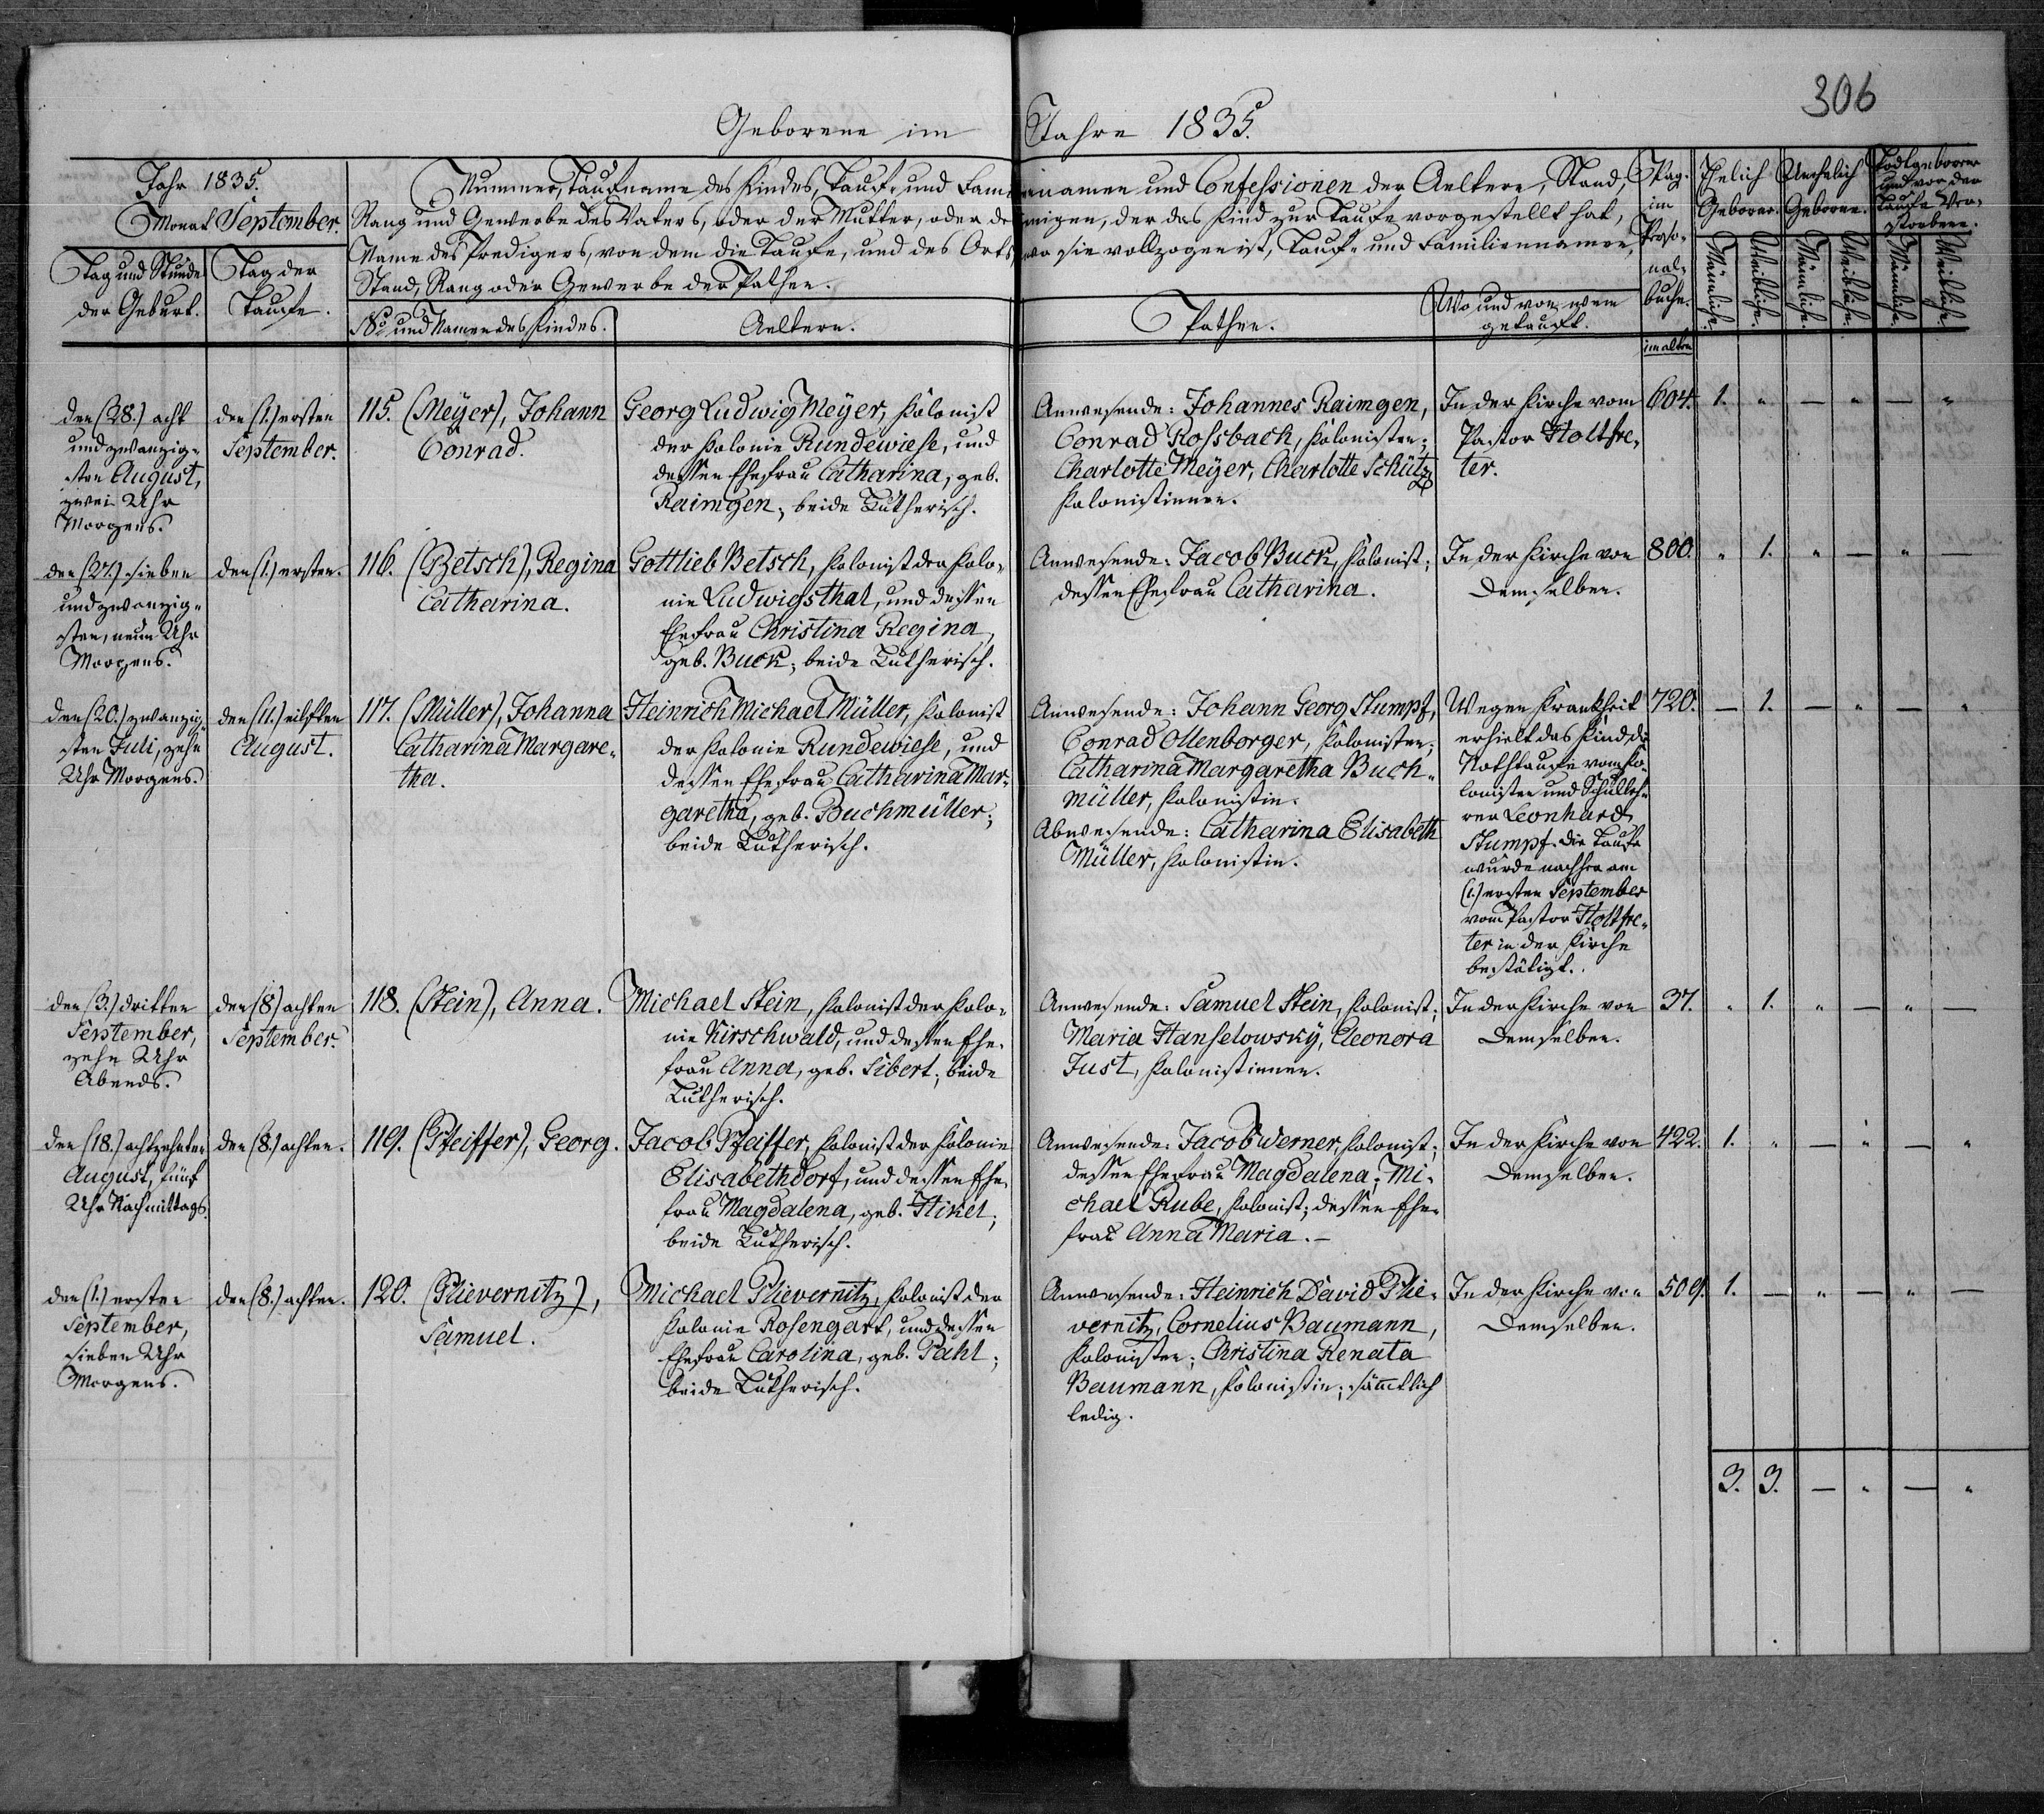 306
Geborene im Jahre 1835.
Jahr 1835.
Monat September.
Tag und Stunde
der Geburt.
Tag der
Taufe.
Nummer, Taufname des Kindes, Tauf- und Familiennamen und Confessionen der Aeltern, Stand,
Rang und Gewerbe des Vaters, oder der Mutter, oder desjenigen, der das Kind zur Taufe vorgestellt hat,
Name des Predigers, von dem die Taufe, und des Orts, wo sie vollzogen ist, Tauf- und Familiennamen,
Stand, Rang oder Gewerbe der Pathen.
No und Namen des Kindes.
Aeltern.
Pathen.
Wo und von wem
getauft.
Pag.
im
Perso-
nal-
buche.
im alten
Ehelich
Geborene.
Unehelich
Geborene.
Todtgeborene
und vor der
Taufe Ver-
storbene.
Männliche.
Weibliche.
Männliche.
Weibliche.
Männliche.
Weibliche.
den (28.) acht
und zwanzig-
sten August,
zwei Uhr
Morgens.
den (1.) ersten
September.
115. (Meÿer), Johann
Conrad.
Georg Ludwig Meÿer, Kolonist
der Kolonie Rundewiese, und
dessen Ehefrau Catharina, geb.
Raimgen; beide Lutherisch.
Anwesende: Johannes Raimgen,
Conrad Rossback, Kolonisten;
Charlotte Meÿer, Charlotte Schütz,
Kolonistinnen.
In der Kirche vom
Pastor Holtfre-
ter.
604. 1. " — " — "
den (27.) sieben
und zwanzig-
sten, neun Uhr
Morgens.
den (1.) ersten.
116. (Betsch), Regina
Catharina.
Gottlieb Betsch, Kolonist der Kolo-
nie Ludwigsthal, und dessen
Ehefrau Christina Regina,
geb. Buck; beide Lutherisch.
Anwesende: Jacob Buck, Kolonist;
dessen Ehefrau Catharina.
In der Kirche von
Demselben.
800. " 1. " — " —
den (20.) zwanzig-
sten Juli, zehn
Uhr Morgens.
den (11.) eilften
August.
117. (Müller), Johanna
Catharina Margare-
tha.
Heinrich Michael Müller, Kolonist
der Kolonie Rundewiese, und
dessen Ehefrau Catharina Mar-
garetha, geb. Buchmüller;
beide Lutherisch.
Anwesende: Johann Georg Stumpf,
Conrad Ollenborger, Kolonisten;
Catharina Margaretha Buch-
müller, Kolonistin.
Abwesende: Catharina Elisabeth
Müller, Kolonistin.
Wegen Krankheit
erhielt das Kind die
Nothtaufe vom Ko-
lonisten und Schulleh-
rer Leonhard
Stumpf. Die Taufe
wurde nachher am
(1.) ersten September
vom Pastor Holtfre-
ter in der Kirche
bestätigt.
720. — 1. — " — "
den (3.) dritten
September,
zehn Uhr
Abends.
den (8.) achten
September.
118. (Stein), Anna.
Michael Stein, Kolonist der Kolo-
nie Kirschwald, und dessen Ehe-
frau Anna, geb. Sibert; beide
Lutherisch.
Anwesende: Samuel Stein, Kolonist;
Maria Hanselowskÿ, Eleonora
Just, Kolonistinnen.
In der Kirche von
Demselben.
37. " 1. " — " —
den (18.) achtzehnten
August, fünf
Uhr Nachmittags.
den (8.) achten.
119. (Pfeiffer), Georg.
Jacob Pfeiffer, Kolonist der Kolonie
Elisabethdorf, und dessen Ehe-
frau Magdalena, geb. Hikel;
beide Lutherisch.
Anwesende: Jacob Werner, Kolonist;
dessen Ehefrau Magdalena; Mi-
chael Rube, Kolonist; dessen Ehe-
frau Anna Maria. —
In der Kirche von
Demselben.
422. 1. " — " — "
den (1.) ersten
September,
sieben Uhr
Morgens.
den (8.) achten.
120. (Plievernitz),
Samuel.
Michael Plievernitz, Kolonist der
Kolonie Rosengart, und dessen
Ehefrau Carolina, geb. Pahl;
beide Lutherisch.
Anwesende: Heinrich David Plie-
vernitz, Cornelius Baumann,
Kolonisten; Christina Renata
Baumann, Kolonistin; sämtlich
ledig.
In der Kirche von
Demselben.
509. 1. — " — " —
3. 3. — " — "